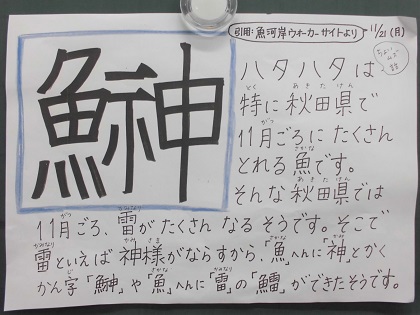 引用:魚河岸ウオーカーサイトより
11/21(月)
鰰
ハタハタは
特に秋田県で
11月ごろにたくさん
とれる魚です。
そんな秋田県では
11月ごろ、雷がたくさんなるそうです。そこで
雷といえば神様がならすから、「魚」へんに「神」とかく
かん字「鰰」や「魚」へんに「雷」の「鱩」ができたそうです。